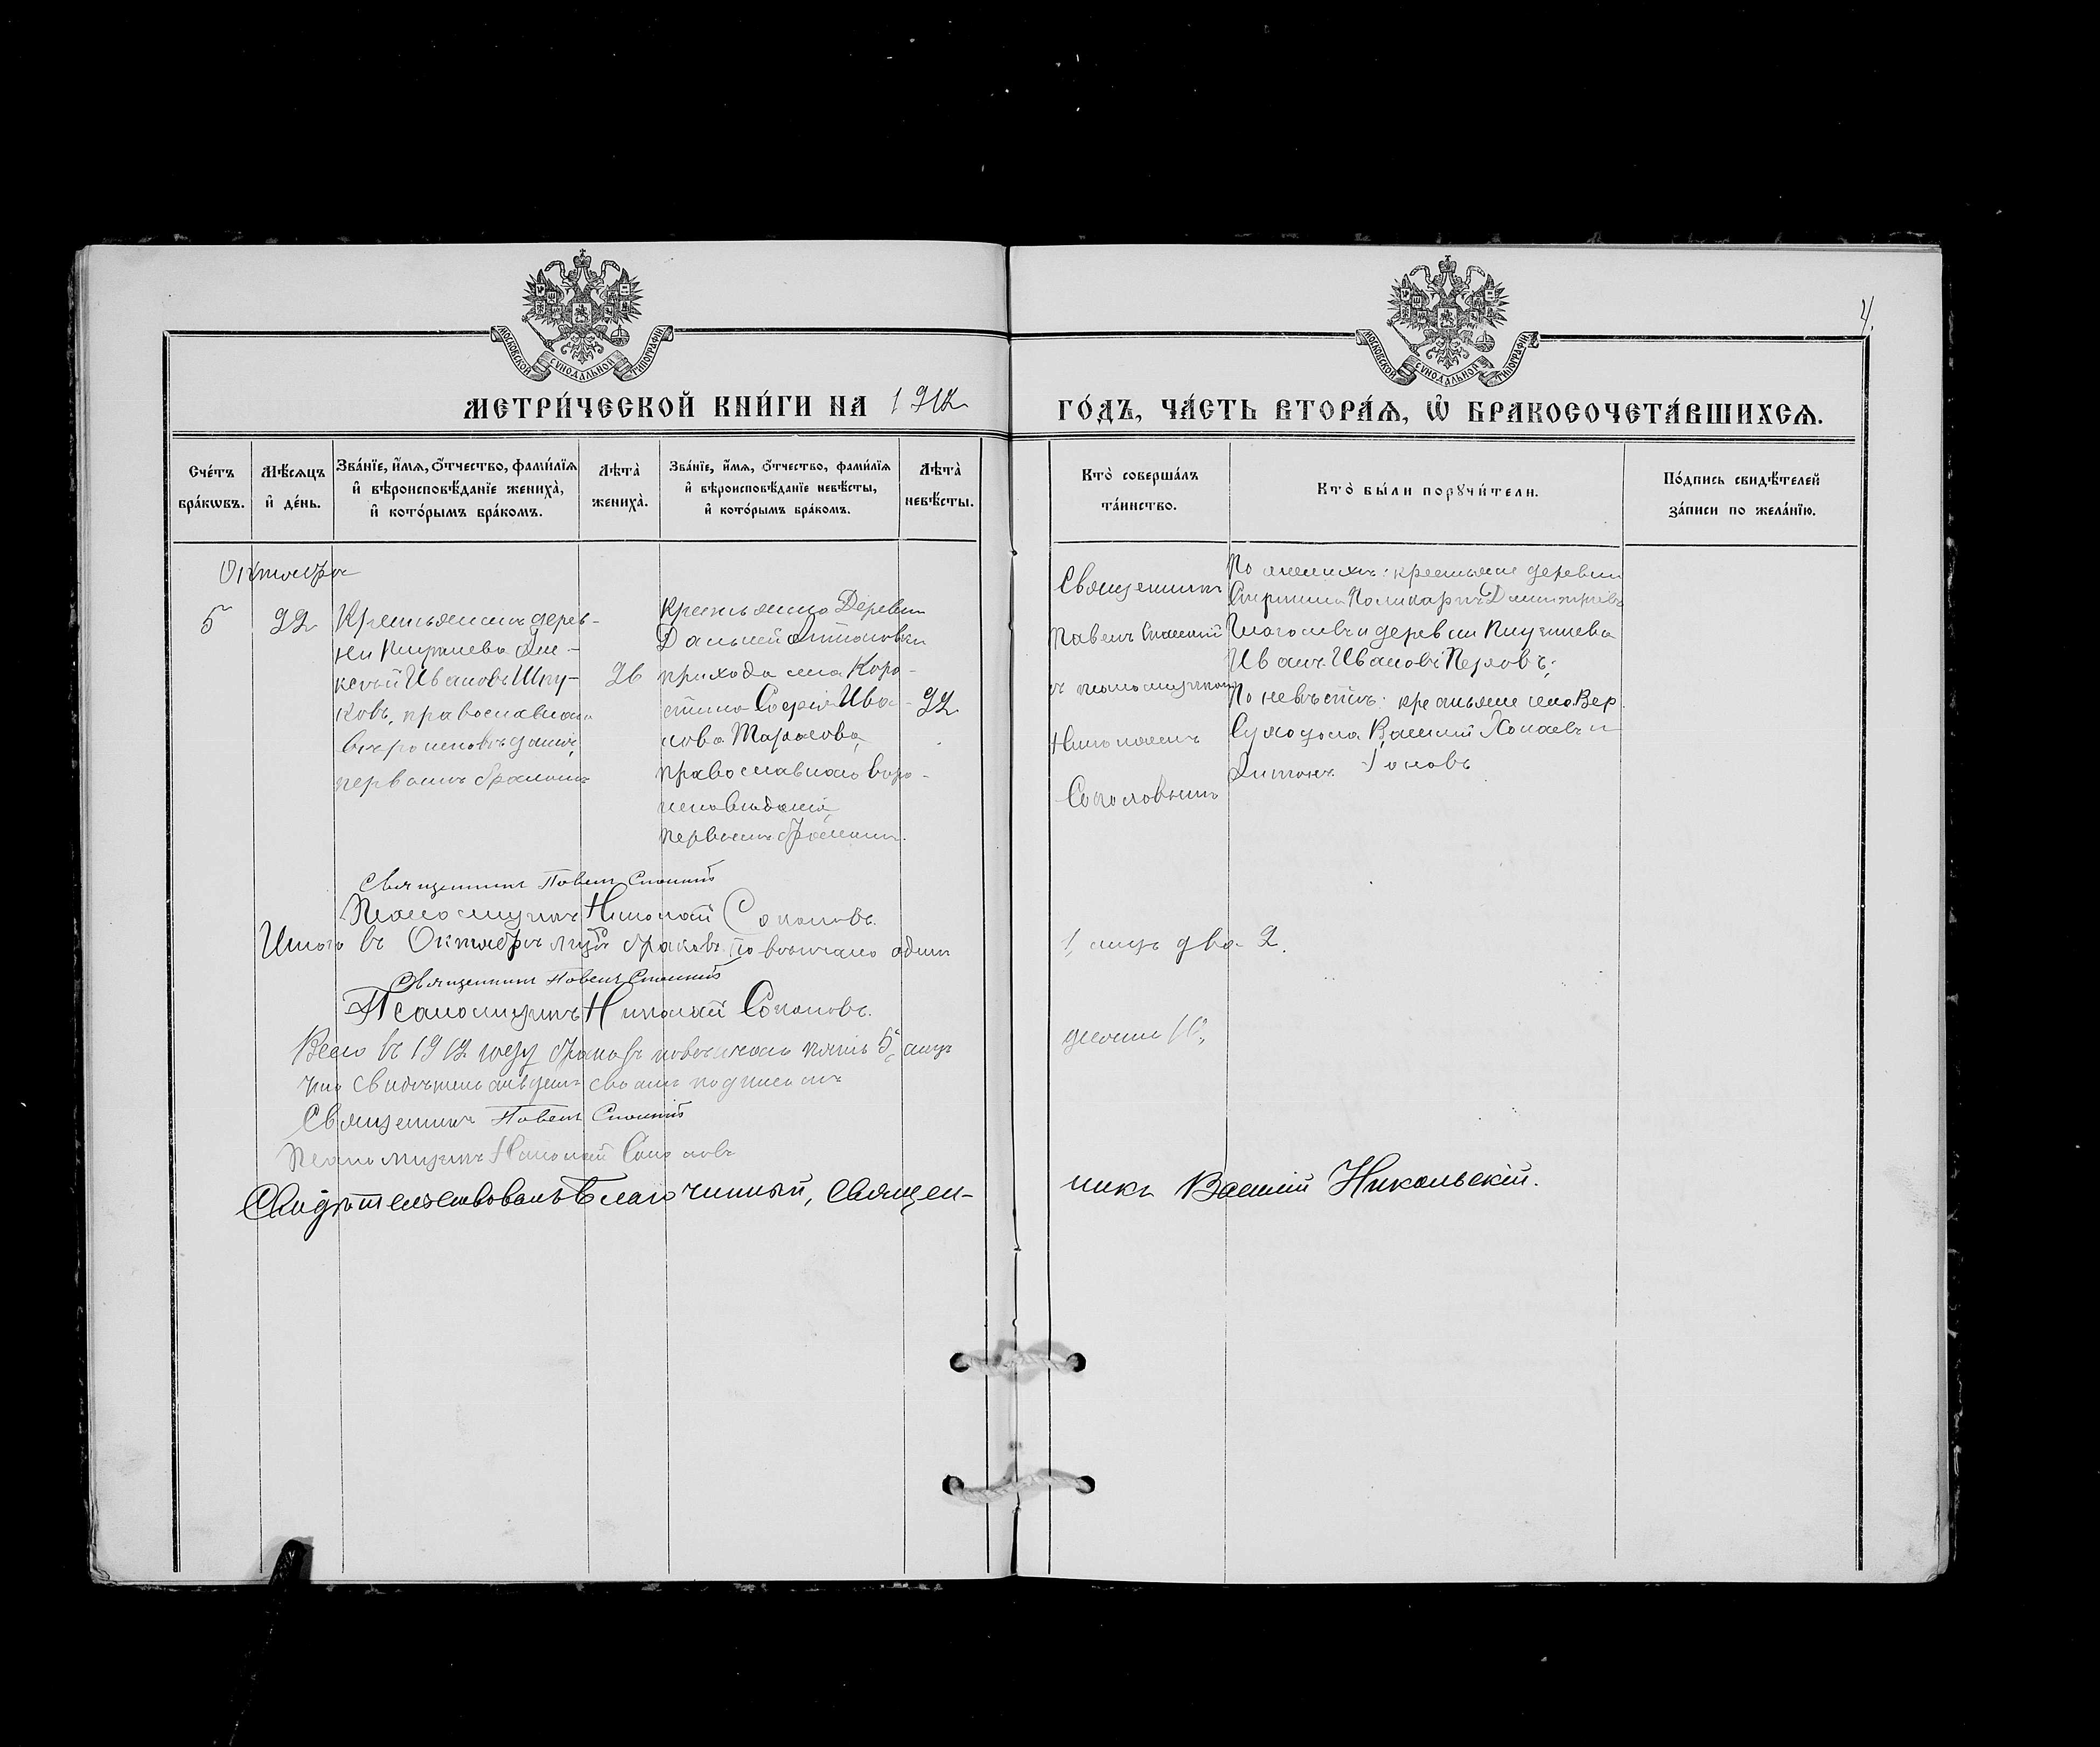 МОСКОВСКОЙ СѴНОДАЛЬНОЙ ТИПОГРАФІИ
МОСКОВСКОЙ СѴНОДАЛЬНОЙ ТИПОГРАФІИ
4.
МЕТРИ́ЧЕСКОЙ КНИ́ГИ НА 1912
ГО́ДЪ, ЧА́СТЬ ВТОРА́Ѧ, Ѡ҆ БРАКОСОЧЕТА́ВШИХСѦ.
Сче́тъ
бра́кѡвъ.
Мѣ́сѧцъ
и҆ де́нь.
Зва́нїе, и҆́мѧ, ѻ҆́тчество, фами́лїѧ
и҆ вѣроисповѣ́данїе жениха̀,
и҆ кото́рымъ бра́комъ.
Лѣта̀
жениха̀.
Зва́нїе, и҆́мѧ, ѻ҆́тчество, фами́лїѧ
и҆ вѣроисповѣ́данїе невѣ́сты,
и҆ кото́рымъ бра́комъ.
Лѣта̀
невѣ́сты.
Кто̀ соверша́лъ
та́инство.
Кто̀ бы́ли порꙋчи́тели.
По́дпись свидѣ́телей
за́писи по жела́нїю.
Октября
5
22
Крестьянинъ дерев-
ни
Иванов
ковъ, православнаго
вѣроисповѣданія,
первымъ бракомъ
26
Крестьянка Деревни
Дальней Антоновки
прихода села Коро-
стина Софія Ива-
нова Тарасова,
православнаго вѣро-
исповѣданія,
первымъ бракомъ.
22
Священникъ
Павелъ Спасскій
съ псаломщикомъ
Николаемъ
Соколовымъ
По женихѣ: крестьяне деревни
Поликарпъ Димитріевъ
и деревни
Иванъ Ивановъ Перловъ;
По невѣстѣ: крестьяне села Вер.
Василий и
Антонъ
Священникъ Павелъ Спасскій
Псаломщикъ Николай Соколовъ.
Итого въ Октябрѣ мцѣ браковъ повѣнчано одинъ
1, лицъ два 2.
Священникъ Павелъ Спасскій
Псаломщикъ Николай Соколовъ.
Всего въ 1912 году браковъ повѣнчано пять 5, лицъ
десять 10,
что свидѣтельствуемъ своимъ подписомъ
Священникъ Павелъ Спасскій
Псаломщикъ Николай Соколовъ
Свидѣтельствовалъ Благочинный, Священ-
никъ Василій Никольскій.